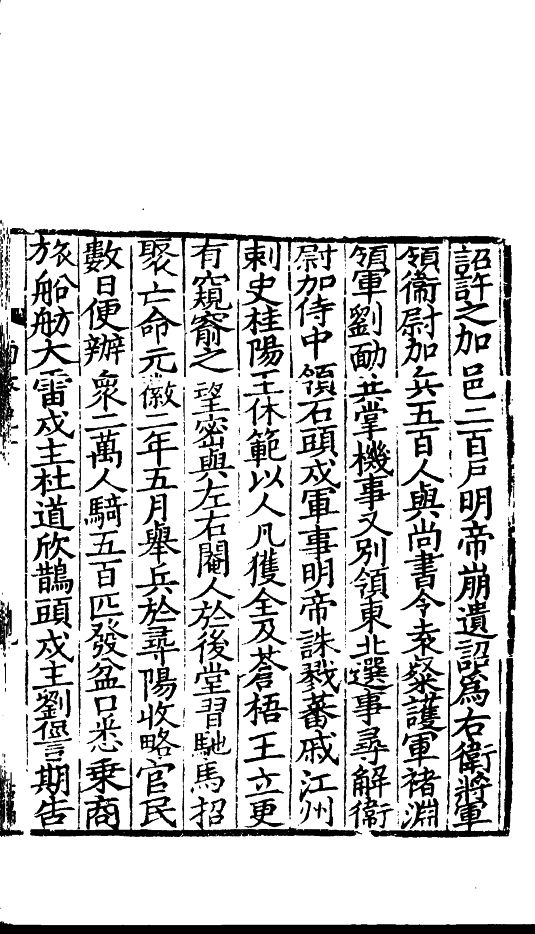 詔許之加邑二百戶明帝崩遺詔爲右衛將軍
領衞尉加兵五百人與尚書令袁粲護軍褚淵
領軍劉勔共掌機事又別領東北選事尋解衞
尉加侍中領石頭戍軍事明帝誅戮蕃戚江州
刺史桂陽王休範以人凡獲全及蒼梧王立更
有窺窬之望密與左右閹人於後堂習馳馬招
聚亡命元徽二年五月舉兵於尋陽收略官民
數日便辦衆二萬人騎五百匹發盆口悉乗商
旅船舫大雷戍主杜道欣鵲頭戍主劉諐期告